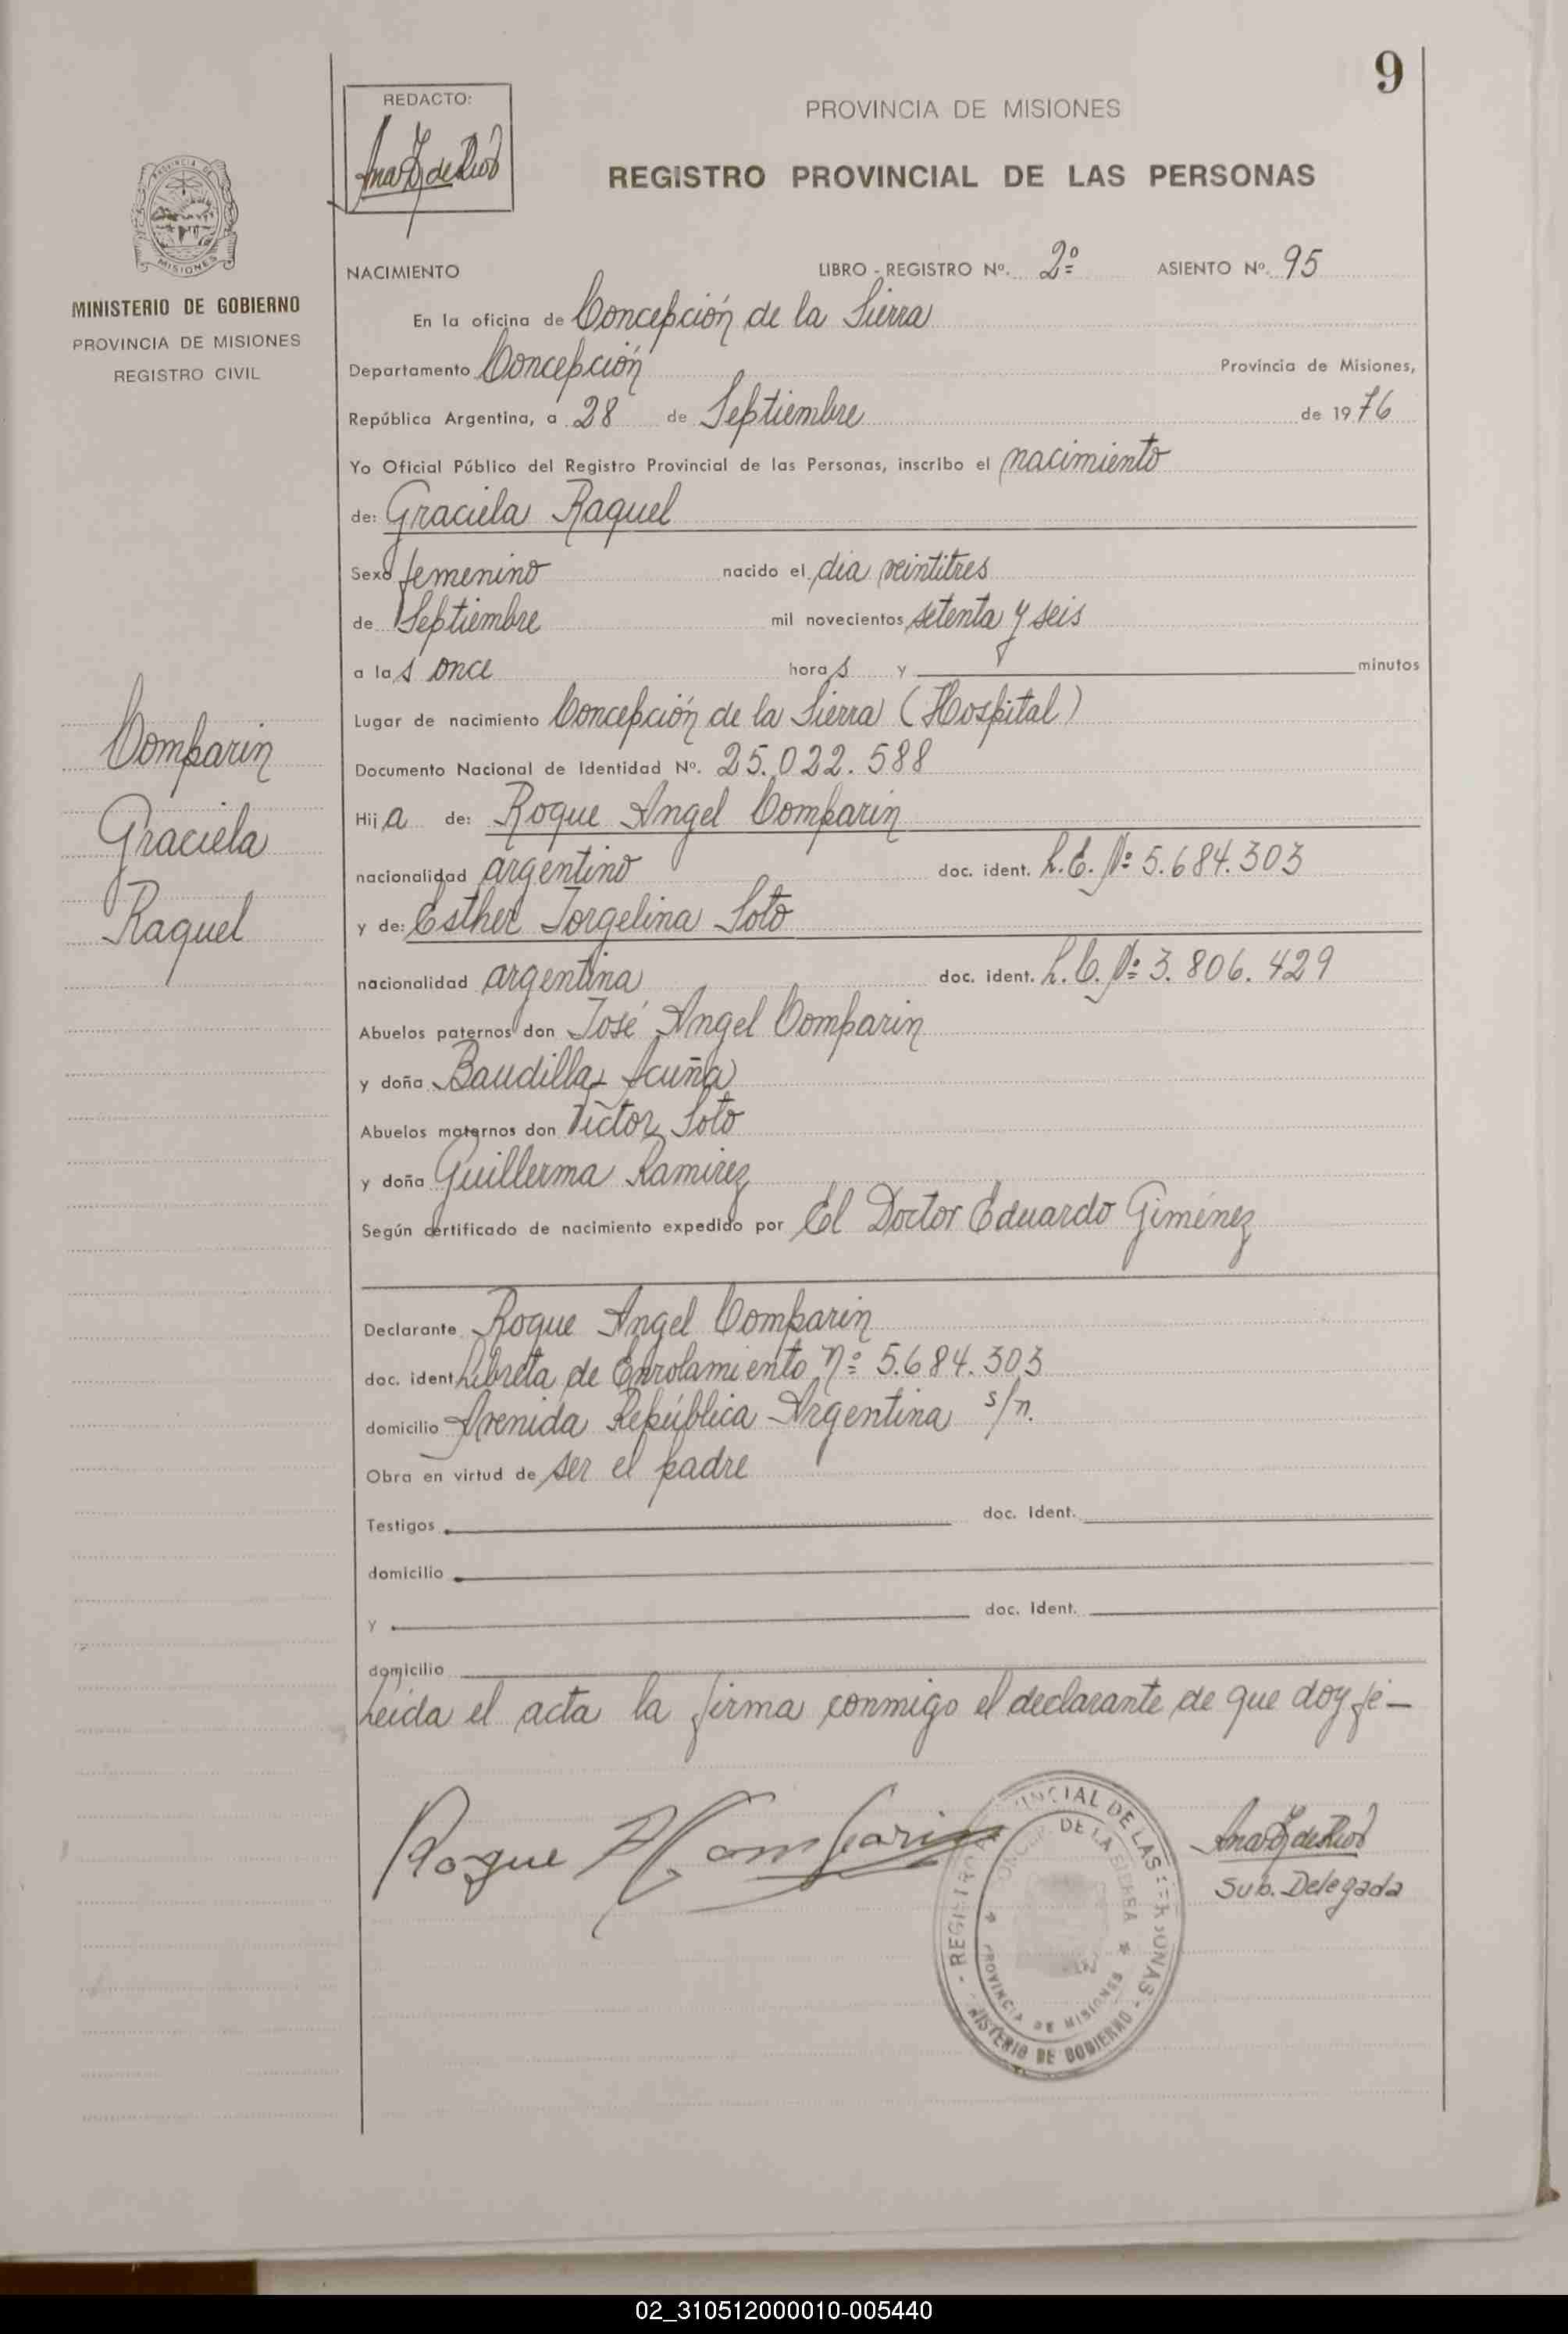 9
REDACTO:
PROVINCIA DE MISIONES
REGISTRO PROVINCIAL DE LAS PERSONAS
MISIONES
MINISTERIO DE GOBIERNO
PROVINCIA DE MISIONES
REGISTRO CIVIL
NACIMIENTO LIBRO - REGISTRO Nº. 2º ASIENTO Nº. 95
En la oficina de Concepción de la Sierra
Departamento Concepción Provincia de Misiones,
República Argentina, a 28 de Septiembre de 1976
Yo Oficial Público del Registro Provincial de las Personas, inscribo el nacimiento
de: Graciela Raquel
Sexo femenino nacido el dia veintitres
de Septiembre mil novecientos setenta y seis
a las once horas y minutos
Lugar de nacimiento Concepción de la Sierra (Hospital)
Documento Nacional de Identidad Nº. 25.022.588
Comparin
Graciela
Raquel
Hija de: Roque Angel Comparin
nacionalidad argentino doc. ident. L.E. Nº 5.684.303
y de: Esther Jorgelina Soto
nacionalidad argentina doc. ident. L.C. Nº 3.806.429
Abuelos paternos don José Angel Comparin
y doña Baudilla Acuña
Abuelos maternos don Victor Soto
y doña Guillerma Ramirez
Según certificado de nacimiento expedido por El Doctor Eduardo Giménez
Declarante Roque Angel Comparin
doc. ident Libreta de Enrolamiento nº 5.684.303
domicilio Avenida República Argentina s/n.
Obra en virtud de ser el padre
Testigos doc. Ident.
domicilio
y doc. Ident.
domicilio
Leída el acta la firma conmigo el declarante de que doy fé-
Roque A Comparin
Sub. Delegada
REGISTRO PROVINCIAL DE LAS PERSONAS
DE LA SIERRA
PROVINCIA DE MISIONES
MINISTERIO DE GOBIERNO
02_310512000010-005440